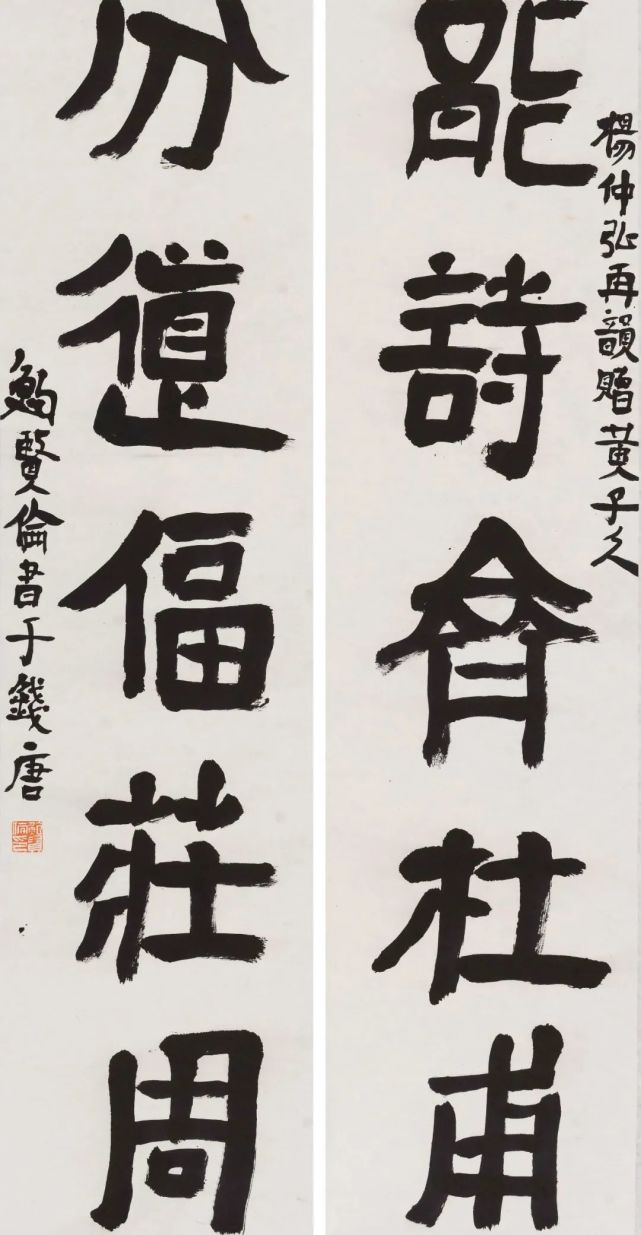 楊仲弘再韻贈黄子久
能詩齊杜甫
分道偪莊周
鮑賢倫書于錢唐